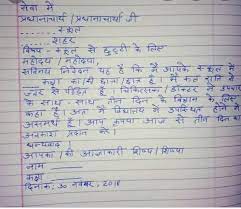 सेवा में
प्रधानाचार्य / प्रधानाचार्या जी
स्कूल
शहर
विषय - स्कूल से छुट्टी के लिए
महोदय / महोदया,
सविनय निवेदन यह है कि मैं आपके स्कूल में
कक्षा का/की छात्र/छात्रा हूँ। मैं कल रात से
ज्वर से पीड़ित हूँ। चिकित्सक / डॉक्टर ने उपचार
के साथ-साथ तीन दिन के विश्राम के लिए
कहा है। अतः मैं विद्यालय में उपस्थित होने में
असमर्थ हूँ। आप कृपया आज से तीन दिन का
अवकाश प्रदान करें।
धन्यवाद
आपका / की आज्ञाकारी शिष्य / शिष्या
नाम
कक्षा
दिनांक: 30 नवम्बर, 2018